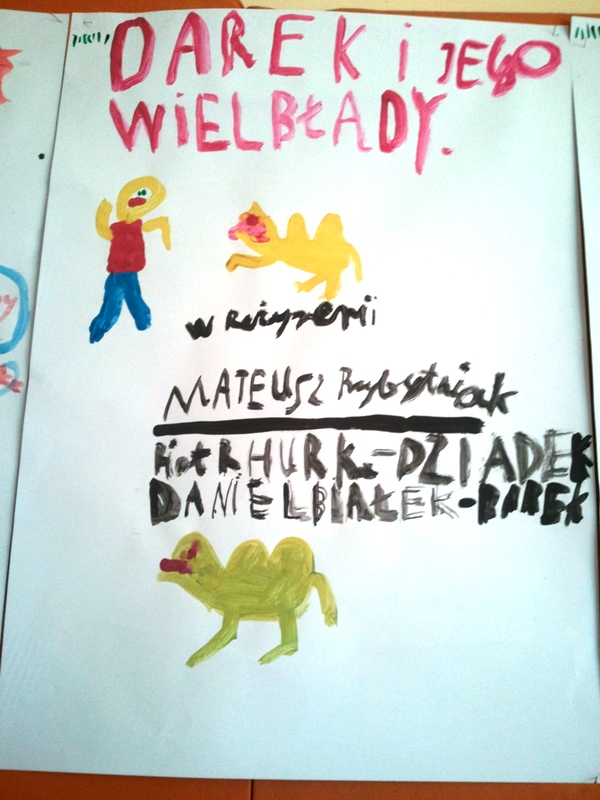 DAREK i JEGO
WiELBŁĄDY.
w Reżyremi
MATEUSZ
PiotR HURK.-DZIADEK
DANiEL BIAŁEK-DAREK